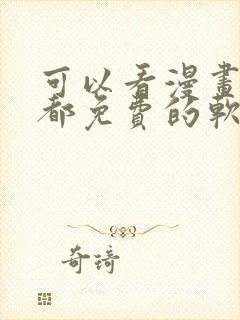 可以看漫畫
都免費的軟
奇琦